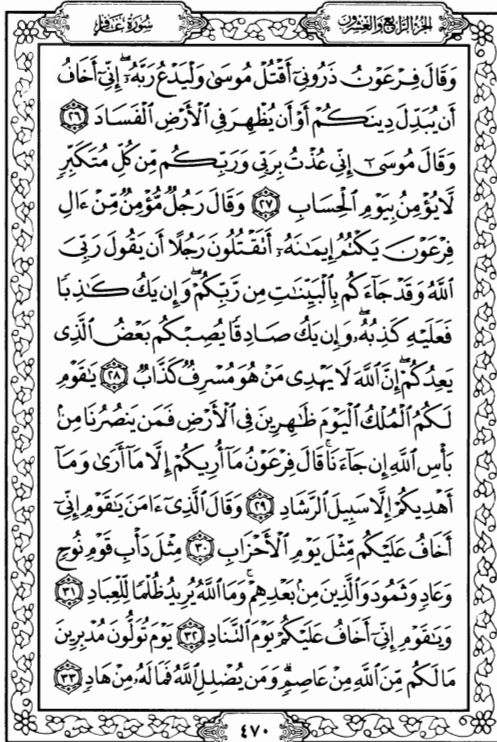 الجزء الرابع والعشرون
سورة غافر
وَقَالَ فِرْعَوْنُ ذَرُونِىٓ أَقْتُلْ مُوسَىٰ وَلْيَدْعُ رَبَّهُۥٓ ۖ إِنِّىٓ أَخَافُ
أَن يُبَدِّلَ دِينَكُمْ أَوْ أَن يُظْهِرَ فِى ٱلْأَرْضِ ٱلْفَسَادَ ٢٦
وَقَالَ مُوسَىٰٓ إِنِّى عُذْتُ بِرَبِّى وَرَبِّكُم مِّن كُلِّ مُتَكَبِّرٍ
لَّا يُؤْمِنُ بِيَوْمِ ٱلْحِسَابِ ٢٧ وَقَالَ رَجُلٌ مُّؤْمِنٌ مِّنْ ءَالِ
فِرْعَوْنَ يَكْتُمُ إِيمَـٰنَهُۥٓ أَتَقْتُلُونَ رَجُلًا أَن يَقُولَ رَبِّىَ
ٱللَّهُ وَقَدْ جَآءَكُم بِٱلْبَيِّنَـٰتِ مِن رَّبِّكُمْ ۖ وَإِن يَكُ كَـٰذِبًا
فَعَلَيْهِ كَذِبُهُۥ ۖ وَإِن يَكُ صَادِقًا يُصِبْكُم بَعْضُ ٱلَّذِى
يَعِدُكُمْ ۖ إِنَّ ٱللَّهَ لَا يَهْدِى مَنْ هُوَ مُسْرِفٌ كَذَّابٌ ٢٨ يَـٰقَوْمِ
لَكُمُ ٱلْمُلْكُ ٱلْيَوْمَ ظَـٰهِرِينَ فِى ٱلْأَرْضِ فَمَن يَنصُرُنَا مِنۢ
بَأْسِ ٱللَّهِ إِن جَآءَنَا ۚ قَالَ فِرْعَوْنُ مَآ أُرِيكُمْ إِلَّا مَآ أَرَىٰ وَمَآ
أَهْدِيكُمْ إِلَّا سَبِيلَ ٱلرَّشَادِ ٢٩ وَقَالَ ٱلَّذِىٓ ءَامَنَ يَـٰقَوْمِ إِنِّىٓ
أَخَافُ عَلَيْكُم مِّثْلَ يَوْمِ ٱلْأَحْزَابِ ٣٠ مِثْلَ دَأْبِ قَوْمِ نُوحٍ
وَعَادٍ وَثَمُودَ وَٱلَّذِينَ مِنۢ بَعْدِهِمْ ۚ وَمَا ٱللَّهُ يُرِيدُ ظُلْمًا لِّلْعِبَادِ ٣١
وَيَـٰقَوْمِ إِنِّىٓ أَخَافُ عَلَيْكُمْ يَوْمَ ٱلتَّنَادِ ٣٢ يَوْمَ تُوَلُّونَ مُدْبِرِينَ
مَا لَكُم مِّنَ ٱللَّهِ مِنْ عَاصِمٍ ۗ وَمَن يُضْلِلِ ٱللَّهُ فَمَا لَهُۥ مِنْ هَادٍ ٣٣
٤٧٠